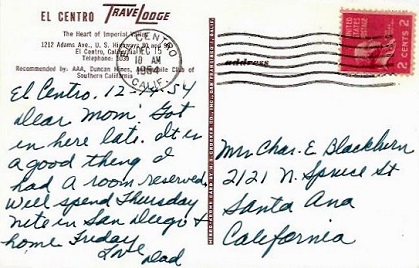 EL CENTRO TRAVELODGE
The Heart of Imperial Valley
1212 Adams Ave., U. S. Highways 80 and 99
El Centro, California
Telephone:
Recommended by: AAA, Duncan Hines, Automobile Club of
Southern California
EL CENTRO
DEC 15
10 AM
1954
CALIF.
UNITED STATES POSTAGE
2 CENTS 2
address
El Centro. 12- -54
Dear Mom. Got
in here late. It is
a good thing I
had a room reserved.
We'll spend Thursday
nite in San Diego &
home Friday
Love Dad
Mrs Chas. E. Blackburn
2121 N. Spruce St
Santa Ana
California